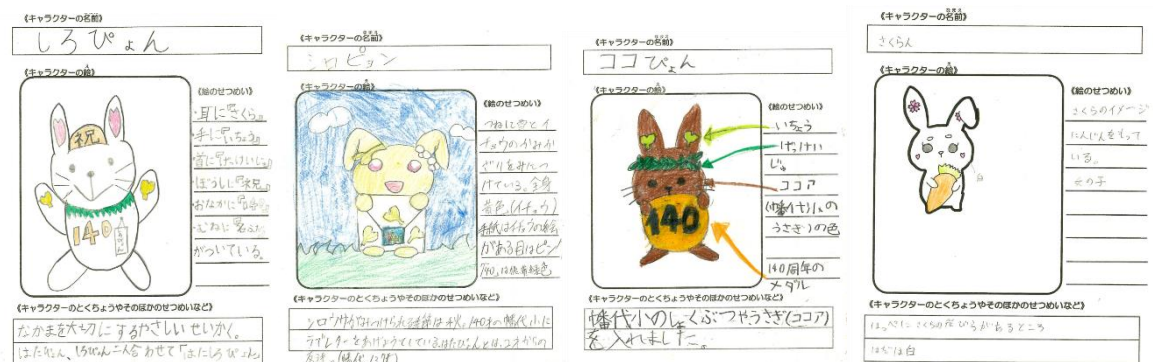 《キャラクターの名前》
しろぴょん
《キャラクターの絵》
《絵のせつめい》
・耳に『さくら』
・手に『いちょう』
・首に『げっけいじゅ』
・ぼうしに『祝』
・おなかに
・むねに
がついている。
《キャラクターのとくちょうやそのほかのせつめいなど》
なかまを大切にするやさしいせいかく。
はたぴょん、しろぴょん二人合わせて「はたしろぴょん」
《キャラクターの名前》
シロピョン
《キャラクターの絵》
《絵のせつめい》
つねに雲とイ
チョウのかみか
ざりをみにつ
けている。全身
黄色。(イチョウ)
手紙はイチョウの絵
がある目はピンク
140.は
《キャラクターのとくちょうやそのほかのせつめいなど》
140才の幡代小に
ラブレターをあげようとしている
《キャラクターの名前》
ココぴょん
《キャラクターの絵》
《絵のせつめい》
いちょう
げっけい
じゅ
ココア
(幡代小の
うさぎ)の色
140周年の
メダル
140
《キャラクターのとくちょうやそのほかのせつめいなど》
幡代小のしょくぶつやうさぎ(ココア)
を入れました。
《キャラクターの名前》
さくらん
《キャラクターの絵》
《絵のせつめい》
さくらのイメージ
にんじんをもって
いる。
女の子
《キャラクターのとくちょうやそのほかのせつめいなど》
ほっぺにさくらの花びらがあるところ
はだは白